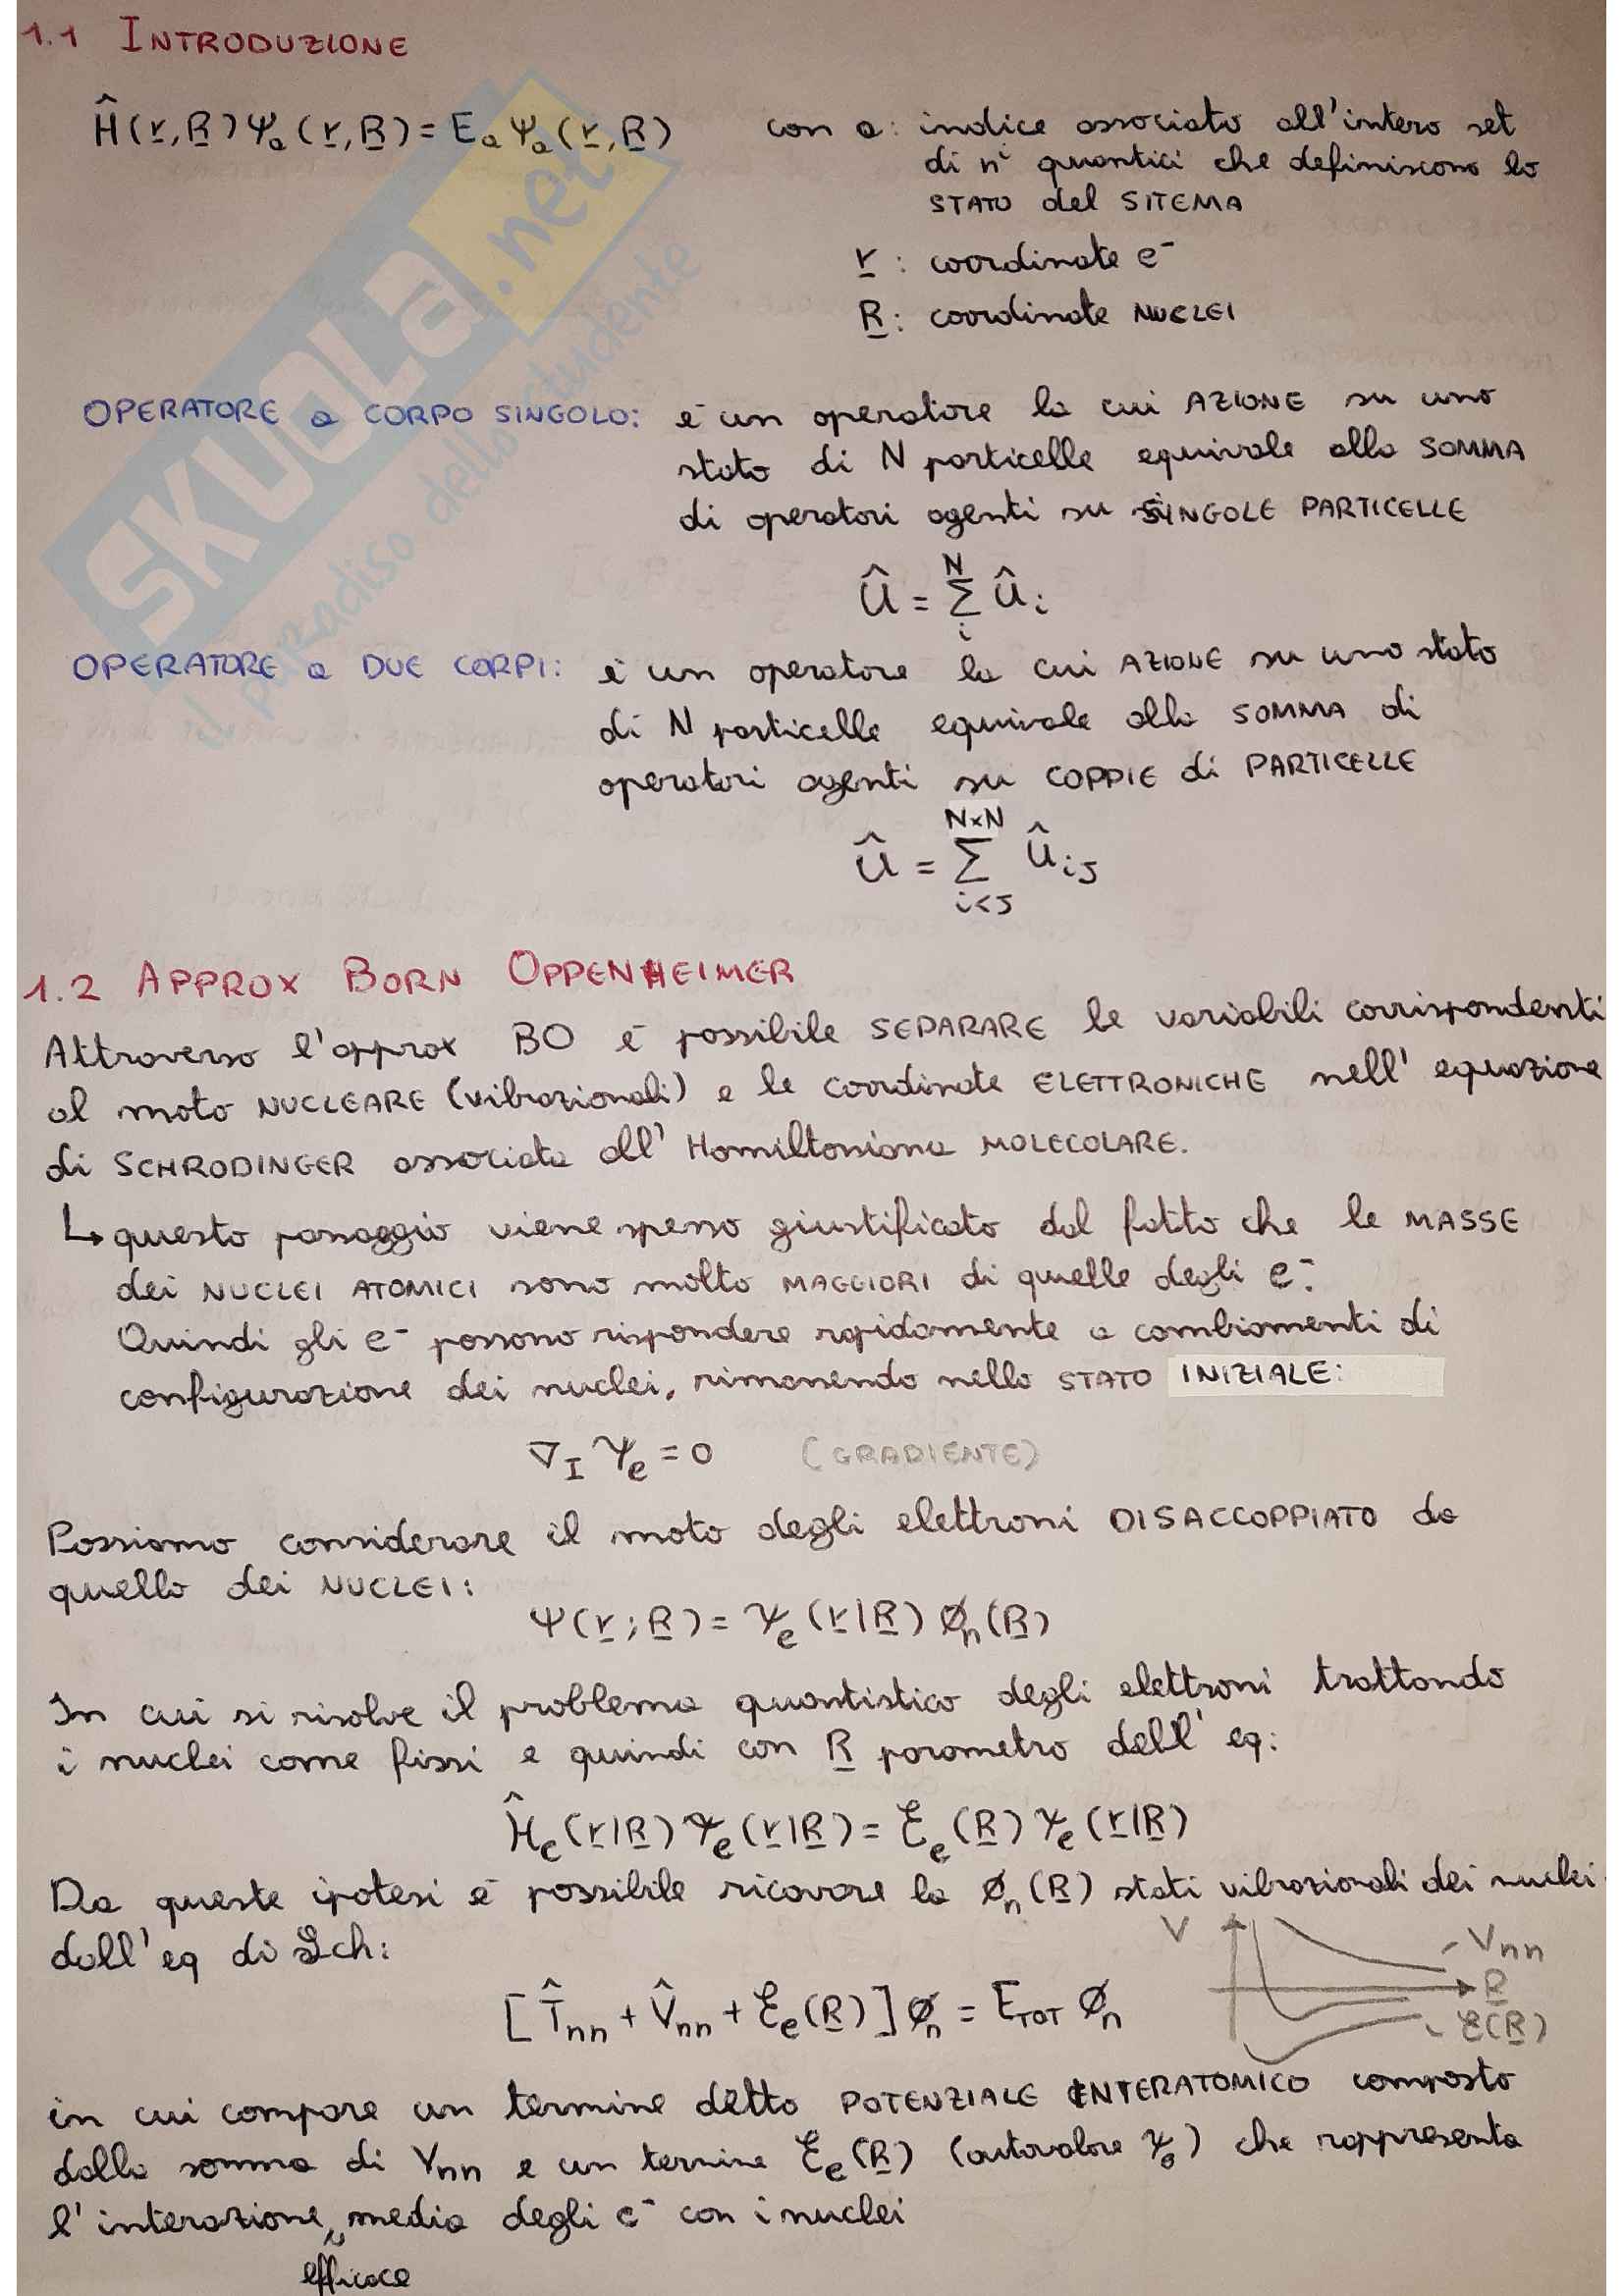 1.1 INTRODUZIONE
Ĥ(r,R)Ψa(r,R) = Ea Ψa(r,R)   con a: indice associato all'intero set
di nⁱ quantici che definiscono lo
STATO del SITEMA
r: coordinate e⁻
R: coordinate NUCLEI
OPERATORE a CORPO SINGOLO: è un operatore la cui AZIONE su uno
stato di N particelle equivale alla SOMMA
di operatori agenti su SINGOLE PARTICELLE
Û = Σ_i^N û_i
OPERATORE a DUE CORPI: è un operatore la cui AZIONE su uno stato
di N particelle equivale alla SOMMA di
operatori agenti su COPPIE di PARTICELLE
Û = Σ_{i<J}^{N×N} Û_{iJ}
1.2 APPROX BORN OPPENHEIMER
Attraverso l'approx BO è possibile SEPARARE le variabili corrispondenti
al moto NUCLEARE (vibrazionali) e le coordinate ELETTRONICHE nell'equazione
di SCHRODINGER associata all'Hamiltoniana MOLECOLARE.
↳ questo passaggio viene spesso giustificato dal fatto che le MASSE
dei NUCLEI ATOMICI sono molto MAGGIORI di quelle degli e⁻.
Quindi gli e⁻ possono rispondere rapidamente a cambiamenti di
configurazione dei nuclei, rimanendo nello STATO INIZIALE:
∇_I ψ_e = 0   (GRADIENTE)
Possiamo considerare il moto degli elettroni DISACCOPPIATO da
quello dei NUCLEI:
Ψ(r;R) = ψ_e(r|R) ø_n(R)
In cui si risolve il problema quantistico degli elettroni trattando
i nuclei come fissi e quindi con R parametro dell'eq:
Ĥ_e(r|R) ψ_e(r|R) = ℰ_e(R) ψ_e(r|R)
Da queste ipotesi è possibile ricavare la ø_n(R) stati vibrazionali dei nuclei
dall'eq di Sch:
V
Vnn
R
ℰ(R)
[T̂nn + V̂nn + ℰ_e(R)] ø_n = E_TOT ø_n
in cui compare un termine detto POTENZIALE INTERATOMICO composto
dalla somma di Vnn e un termine ℰ_e(R) (autovalore ψ_e) che rappresenta
l'interazione media degli e⁻ con i nuclei
efficace
SKUOLA.net
il paradiso dello studente